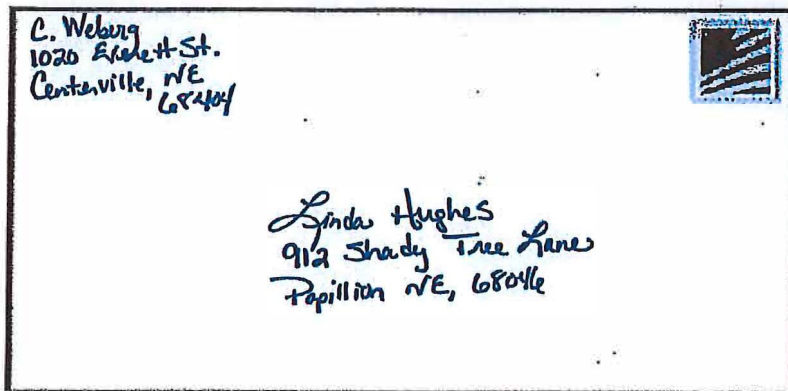 C. Weberg
1020 Everett St.
Centerville, NE
68404
Linda Hughes
912 Shady Tree Lane
Papillion NE, 68046